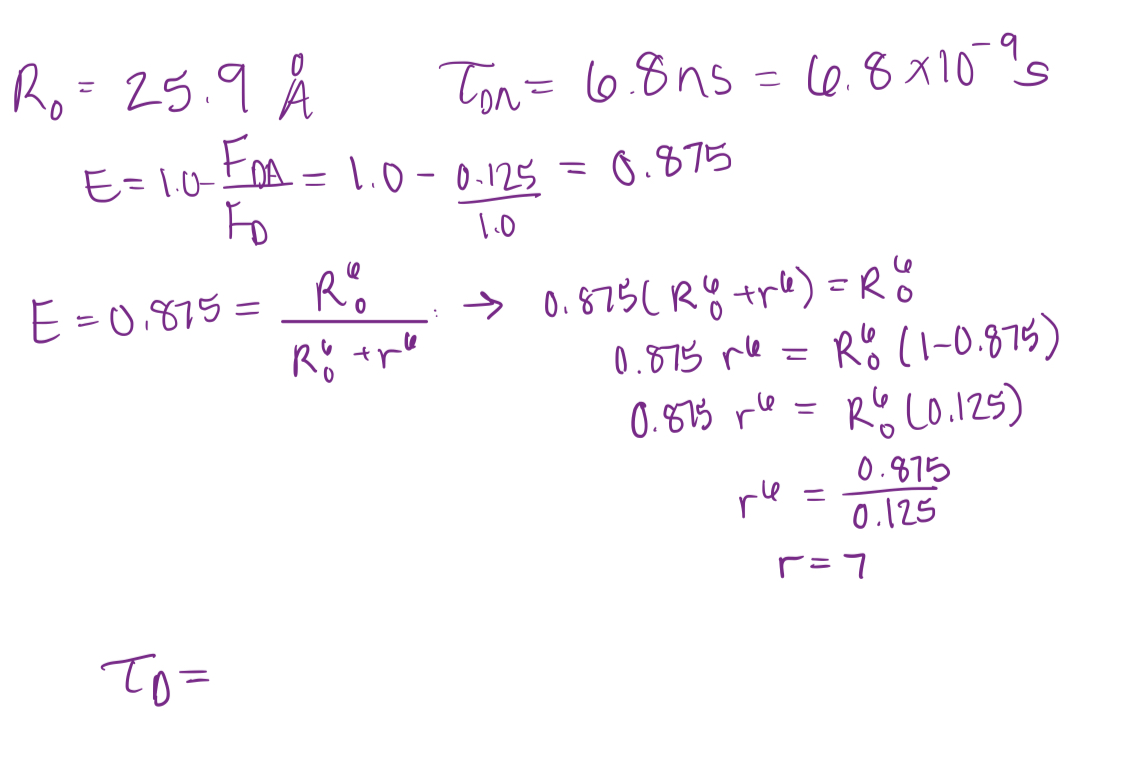 R₀ = 25.9 Å τ_DA = 6.8ns = 6.8 x10⁻⁹s
E = 1.0 - F_DA/F_D = 1.0 - 0.125/1.0 = 0.875
E = 0.875 = R₀⁶/(R₀⁶ + r⁶) → 0.875(R₀⁶ + r⁶) = R₀⁶
0.875 r⁶ = R₀⁶ (1-0.875)
0.875 r⁶ = R₀⁶ (0.125)
r⁶ = 0.875/0.125
r = 7
τ_D =